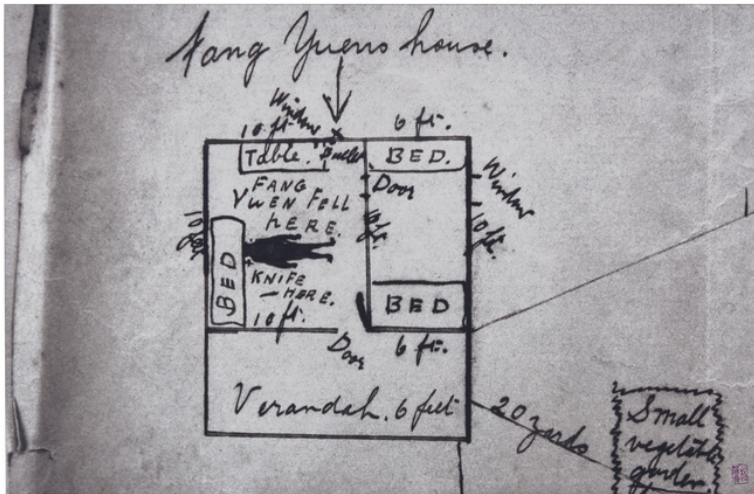 Fang Yuens house.
Window
10 ft.
6 ft.
Table.
Bullet
BED.
Door
Window
FANG
YUEN FELL
HERE.
10 ft.
10 ft.
10 ft.
BED
KNIFE
- HERE.
10 ft.
BED
Door
6 ft.
Verandah. 6 feet
20 yards
Small
vegetable
garden